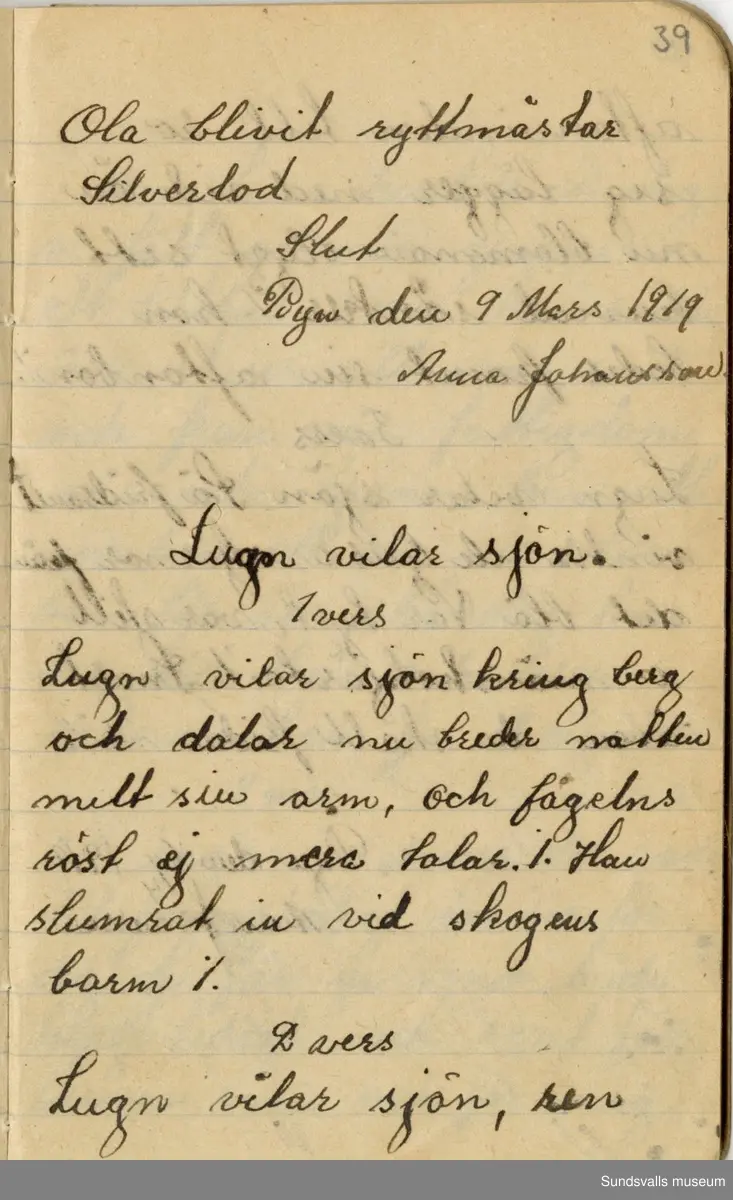 39
Ola blivit ryttmästar
Silverlod
Slut
Byn den 9 Mars 1919
Anna Johansson.
Lugn vilar sjön.
1 vers
Lugn vilar sjön kring berg
och dalar nu breder natten
milt sin arm, och fågelns
röst ej mera talar. %. Han
slumrat in vid skogens
barm %.
2 vers
Lugn vilar sjön, ren
Sundsvalls museum